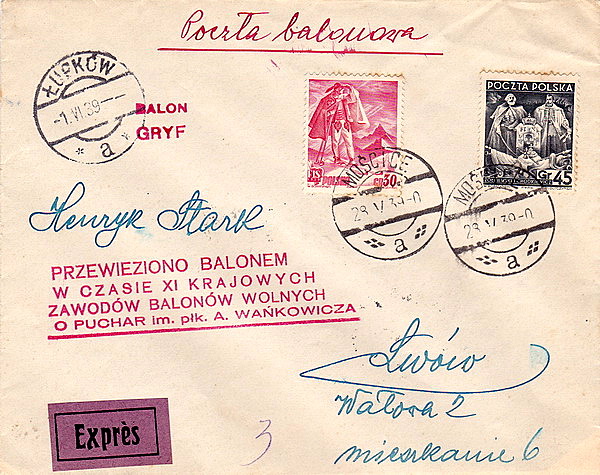 Poczta balonowa
ŁUPKÓW
-1.VI.39
a
BALON
GRYF
POLSKA
GR 30
POCZTA POLSKA
45
MOŚCICE
28.V.39-0
a
MOŚCICE
28.V.39-0
a
Henryk Stark
PRZEWIEZIONO BALONEM
W CZASIE XI KRAJOWYCH
ZAWODÓW BALONÓW WOLNYCH
O PUCHAR im. płk. A. WAŃKOWICZA
Lwów
Wałowa 2
mieszkanie 6
Exprès
3